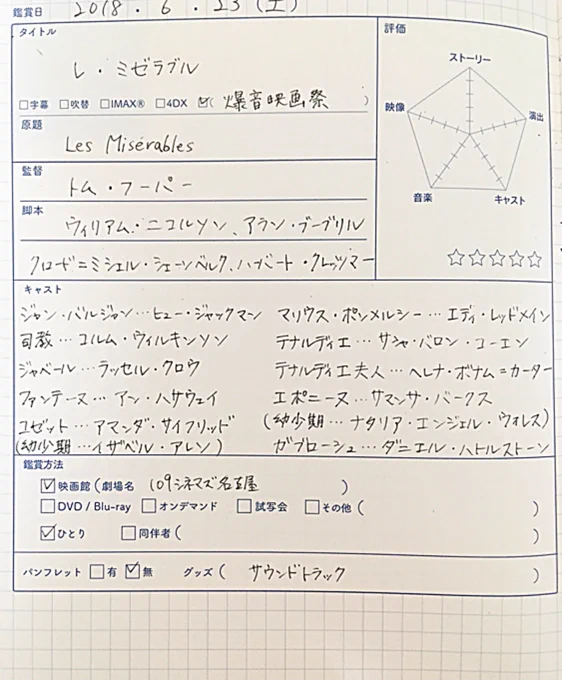 鑑賞日 2018.6.23(土)
タイトル
レ・ミゼラブル
□字幕 □吹替 □IMAX® □4DX ☑( 爆音映画祭 )
原題
Les Misérables
監督
トム・フーパー
脚本
ウィリアム・ニコルソン、アラン・ブーブリル
クロード=ミシェル・シェーンベルク、ハーバート・クレッツマー
評価
ストーリー
映像
演出
音楽
キャスト
☆☆☆☆☆
キャスト
ジャン・バルジャン…ヒュー・ジャックマン マリウス・ポンメルシー…エディ・レッドメイン
司教…コルム・ウィルキンソン テナルディエ…サシャ・バロン・コーエン
ジャベール…ラッセル・クロウ テナルディエ夫人…ヘレナ・ボナム=カーター
ファンテーヌ…アン・ハサウェイ エポニーヌ…サマンサ・バークス
コゼット…アマンダ・サイフリッド (幼少期…ナタリア・エンジェル・ウォレス)
(幼少期…イザベル・アレン) ガブローシュ…ダニエル・ハトルストーン
鑑賞方法
☑映画館(劇場名 109シネマズ名古屋 )
□DVD / Blu-ray □オンデマンド □試写会 □その他( )
☑ひとり □同伴者( )
パンフレット □有 ☑無 グッズ( サウンドトラック )